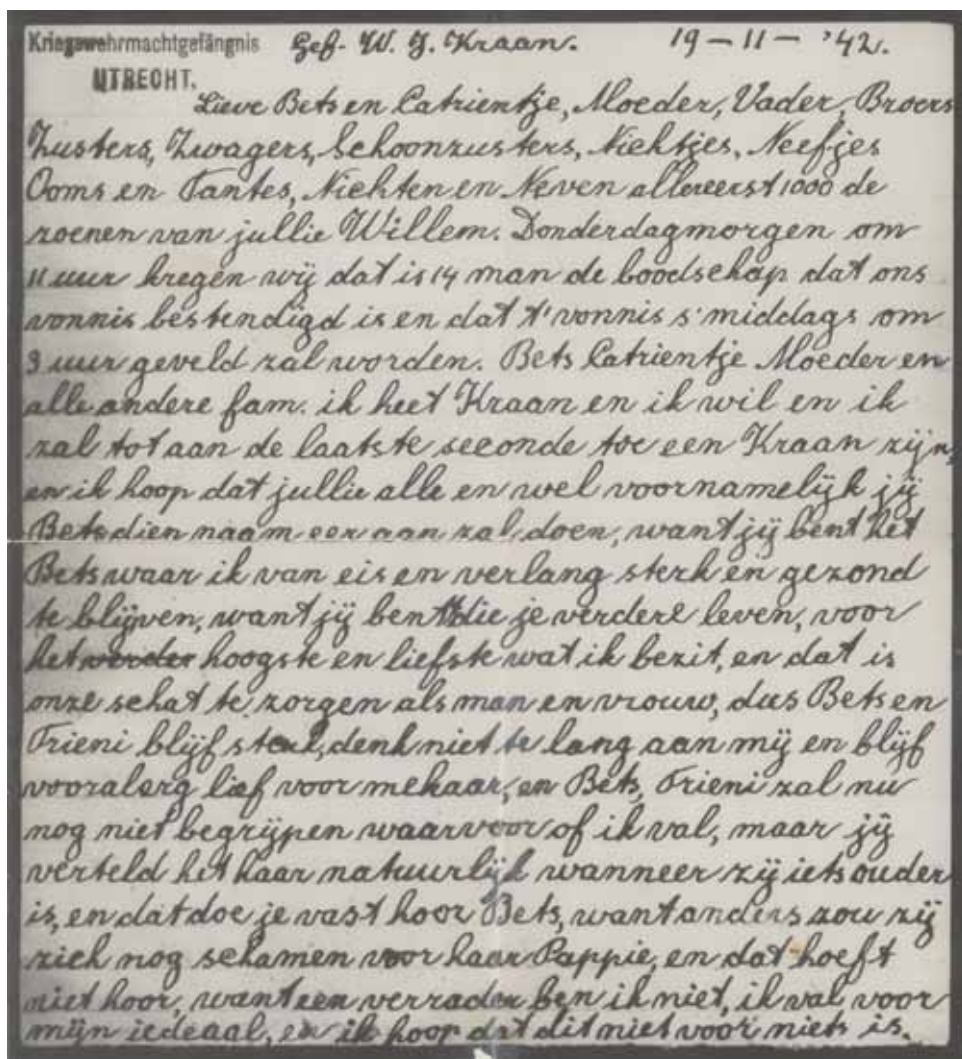 Kriegswehrmachtgefängnis Gef. W. J. Kraan. 19-11-'42.
UTRECHT.
Lieve Bets en Catrientje, Moeder, Vader, Broers
Zusters, Zwagers, Schoonzusters, Nichtjes, Neefjes
Ooms en Tantes, Nichten en Neven allereerst 1000 de
zoenen van jullie Willem. Donderdagmorgen om
11 uur kregen wij dat is 14 man de boodschap dat ons
vonnis bestendigd is en dat 't vonnis s'middags om
3 uur geveld zal worden. Bets Catrientje Moeder en
alle andere fam. ik heet Kraan en ik wil en ik
zal tot aan de laatste seconde toe een Kraan zijn,
en ik hoop dat jullie alle en wel voornamelijk jij
Bets dien naam eer aan zal doen, want jij bent het
Bets waar ik van eis en verlang sterk en gezond
te blijven, want jij bent die je verdere leven, voor
het verder hoogste en liefste wat ik bezit, en dat is
onze schat te zorgen als man en vrouw, dus Bets en
Trieni blijf sterk, denk niet te lang aan mij en blijf
vooral erg lief voor mekaar, en Bets, Trieni zal nu
nog niet begrijpen waarvoor of ik val, maar jij
verteld het haar natuurlijk wanneer zij iets ouder
is, en dat doe je vast hoor Bets, want anders zou zij
zich nog schamen voor haar Pappie, en dat hoeft
niet hoor, want een verrader ben ik niet, ik val voor
mijn iedeaal, en ik hoop dat dit niet voor niets is.